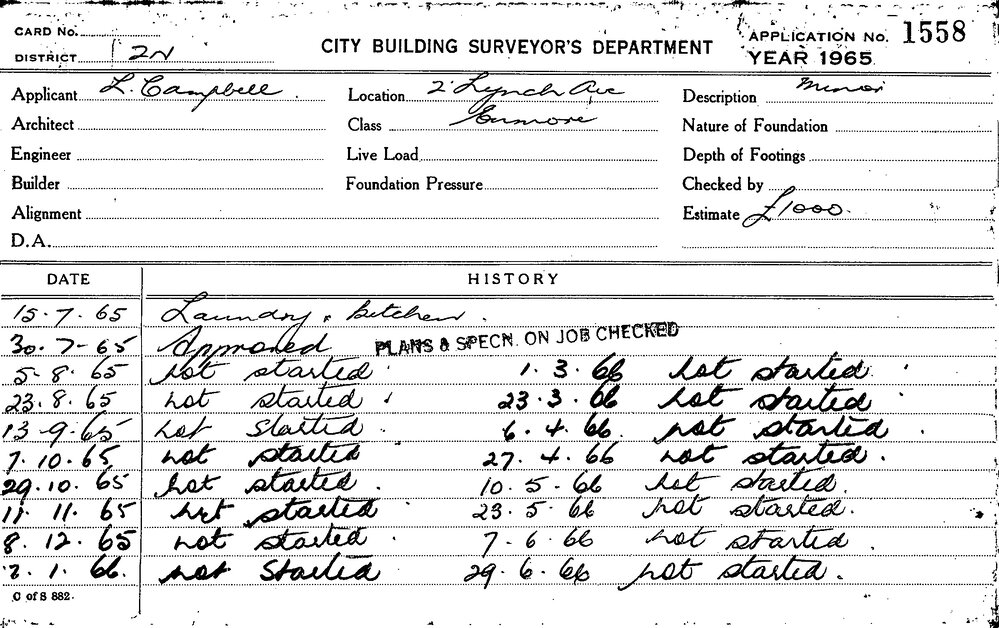 CARD No.
DISTRICT 2N
CITY BUILDING SURVEYOR'S DEPARTMENT
APPLICATION No. 1558
YEAR 1965
Applicant L. Campbell.
Location 2 Lynch Ave
Description Minor
Architect
Class Enmore
Nature of Foundation
Engineer
Live Load
Depth of Footings
Builder
Foundation Pressure
Checked by
Alignment
Estimate £1000.
D.A.
DATE HISTORY
15.7.65 Laundry & Kitchen.
30.7-65 Approved PLANS & SPECN. ON JOB CHECKED
5.8.65 not started 1.3.66 not started
23.8.65 not started 23.3.66 not started
13-9.65 not started 6.4.66 not started
7.10.65 not started 27.4.66 not started.
29.10.65 not started. 10.5.66 not started.
11.11.65 not started 23.5.66 not started.
8.12.65 not started 7.6.66 not started.
1.66. not started 29.6.66 not started.
C of S 882.